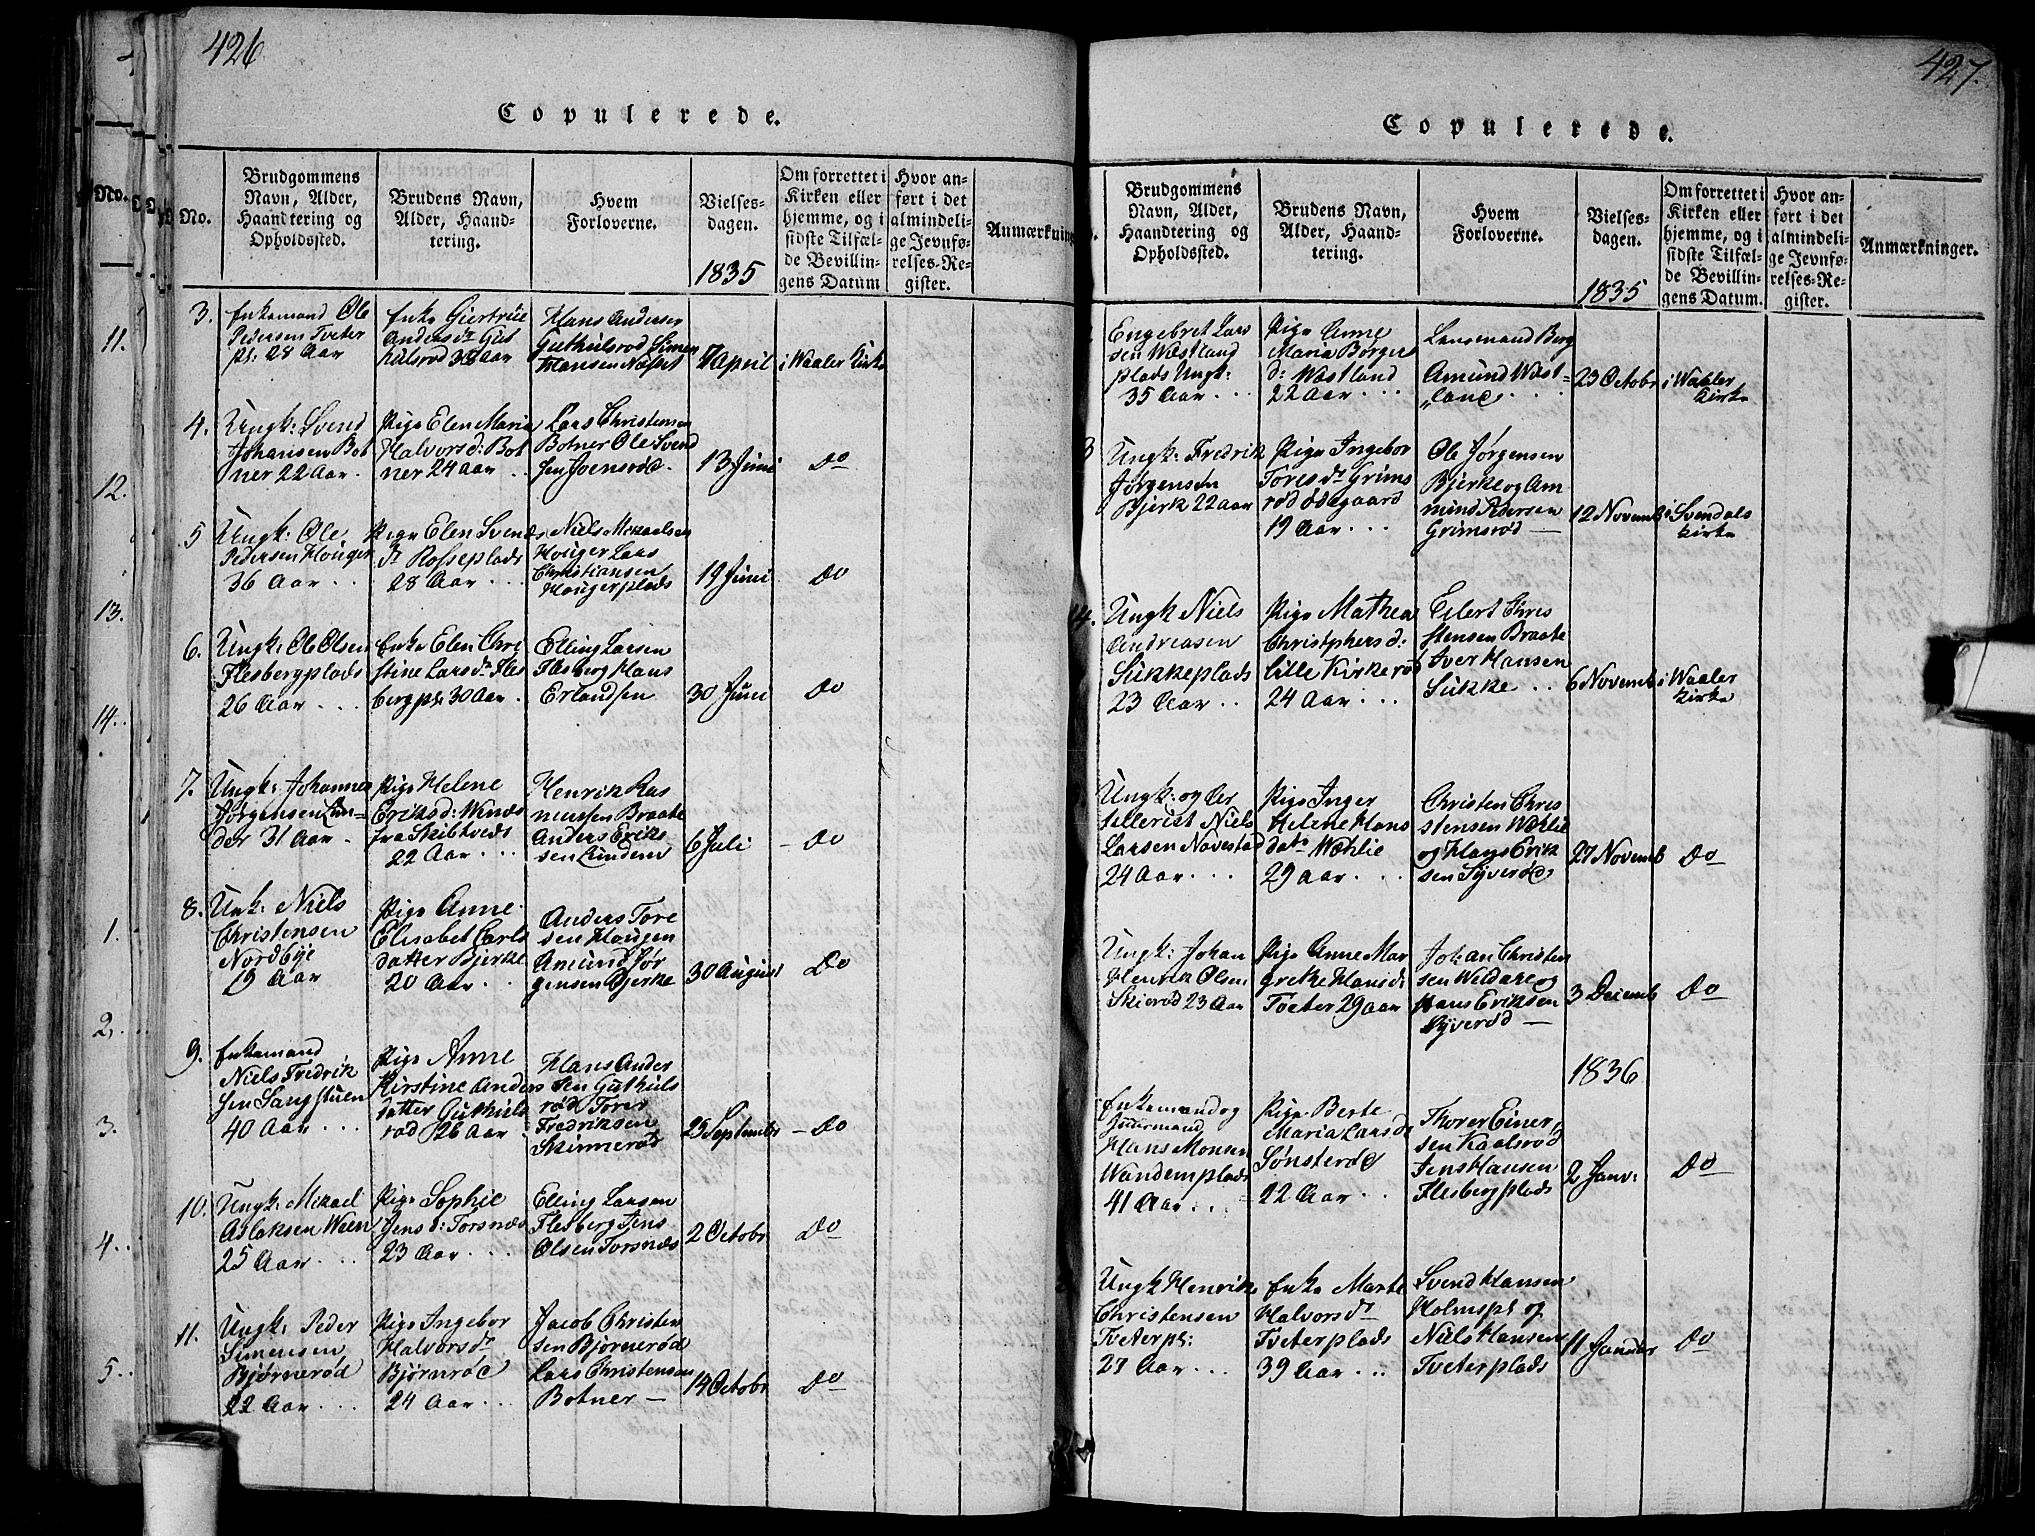 426
Copulerede.
No.
Brudgommens
Navn, Alder,
Haandtering og
Opholdssted.
Brudens Navn,
Alder, Haand-
tering.
Hvem
Forloverne.
Vielses-
dagen.
1835
Om forrettet i
Kirken eller
hjemme, og i
sidste Tilfæl-
de Bevillin-
gens Datum
Hvor an-
ført i det
almindeli-
ge Jevnfø-
relses-Re-
gister.
Anmærkning
3.
Enkemand Ole
Pedersen Tveter
pl: 28 Aar
Enke Giertrue
Andersdr Gut
hulsrød 38 aar
Hans Andersen
Guthulsrød Simen
Hansen Næset
7 April
i Waaler Kirke
4.
Ungk: Svend
Johansen Bot
ner 22 Aar
Pige Elen Maria
Halvorsd: Bot
ner 24 aar
Lars Christensen
Botner Ole Svend
sen Joensrød
13 Juni
Do
5
Ungk: Ole
Pedersen Houger
36 Aar
Pige Elen Svends
dr Rosseplads
28 Aar
Niels Mikaelsen
Houger Lars
Christiansen
Hougerplads
19 Juni
Do
6.
Ungk: Ole Olsen
Flesbergplads
26 Aar
Enke Elen Chri
stine Larsdr Fles
bergpl: 30 Aar
Elling Larsen
Flesberg Hans
Erlandsen
30 Juni
Do
7.
Ungk: Johannes
Jørgensen Lun-
der 31 Aar
Pige Helene
Eriksd: Winæs
fra Skibtveds
22 Aar
Henrik Ras
mussen Braate
Anders Erik
sen Lundene
6 Juli
Do
8.
Unk: Niels
Christensen
Nordbye
19 Aar
Pige Anne
Elisabet Carls
datter Bjerke
20 Aar
Anders Tore
sen Hougen
Amund Jør
gensen Bjerke
30 August
Do
9.
Enkemand
Niels Fredrik
sen Sangstuen
40 Aar
Pige Anne
Kirstine Anders
datter Guthuls
rød 26 Aar
Hans Ander
sen Guthuls
rød Torer
Fredriksen
Skinnerød
25 Septembr
Do
10.
Ungk: Mikael
Aslaksen Ween
25 Aar
Pige Sophie
Jensd: Torsnæs
23 Aar
Elling Larsen
Flesberg Jens
Olsen Torsnæs
2 Octobr
Do
11.
Ungk: Peder
Simensen
Bjørnerød
22 Aar
Pige Ingebor
Halvorsdr
Bjørnrød
24 Aar
Jacob Christen
sen Bjørnerød
Lars Christensen
Botner
14 Octobr
Do
427.
Copulerede.
Brudgommens
Navn, Alder,
Haandtering og
Opholdssted.
Brudens Navn,
Alder, Haand-
tering.
Hvem
Forloverne.
Vielses-
dagen.
1835
Om forrettet i
Kirken eller
hjemme, og i
sidste Tilfæl-
de Bevillin-
gens Datum.
Hvor an-
ført i det
almindeli-
ge Jevnfø-
relses-Re-
gister.
Anmærkninger.
Engebret Lars
sen Wæstland
plads Ungk:
35 Aar
Pige Anne
Maria Børges
d: Wæstland
22 Aar
Lensmand Berg
Amund Wæst-
land
23 Octobr
i Waaler
Kirke
3
Ungk: Fredrik
Jørgensen
Bjerk 22 aar
Pige Ingebor
Toresdr Grims
rød Ødegaard
19 Aar
Ole Jørgensen
Bjerke og Am
mund Pedersen
Grimsrød
12 Novemb
i Svendals
Kirke
14.
Ungk Niels
Andreasen
Sukkeplads
23 Aar
Pige Mathea
Christphersd:
lille Kirkerød
24 Aar
Eilert Chris
stensen Braate
Iver Hansen
Sukke
6 Novemb
i Waaler
Kirke
Ungk: og Ar
tillerist Niels
Larsen Navestad
24 Aar
Pige Inger
Helene Hans
datr Wæhlie
29 aar
Christen Chris
stensen Wæhlie
og Hans Erik
sen Syverød
27 Novemb
Do
Ungk: Johan
Henrik Olsen
Skierød 23 Aar
Pige Anne Mar
grethe Hansd:
Tveter 29 aar
Johan Christen
sen Weldare og
Hans Eriksen
Syverød
3 Decemb
Do
1836
Enkemand og
Huusmand
Hans Monsen
Wandemplads
41 Aar
Pige Berte
Maria Larsd
Sønsterød
22 Aar
Thorer Einer
sen Kaalsrød
Jens Hansen
Flesbergplads
2 Janv:
Do
Ungk Henrik
Christensen
Tveterpl:
27 Aar
Enke Marte
Halvorsdr
Tveterplads
39 Aar
Svend Hansen
Holmspl og
Niels Hansen
Tveterplads
11 Janvar
Do
No.
11.
12.
13.
14.
1.
2.
3.
4.
5.